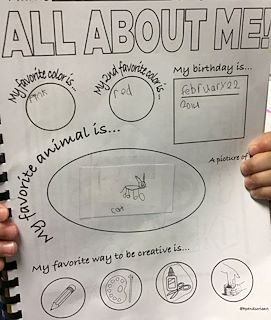 ALL ABOUT ME!
My favorite color is...
My 2nd favorite color is...
My birthday is...
red
february 22
My favorite animal is...
A picture of
cat
My favorite way to be creative is...